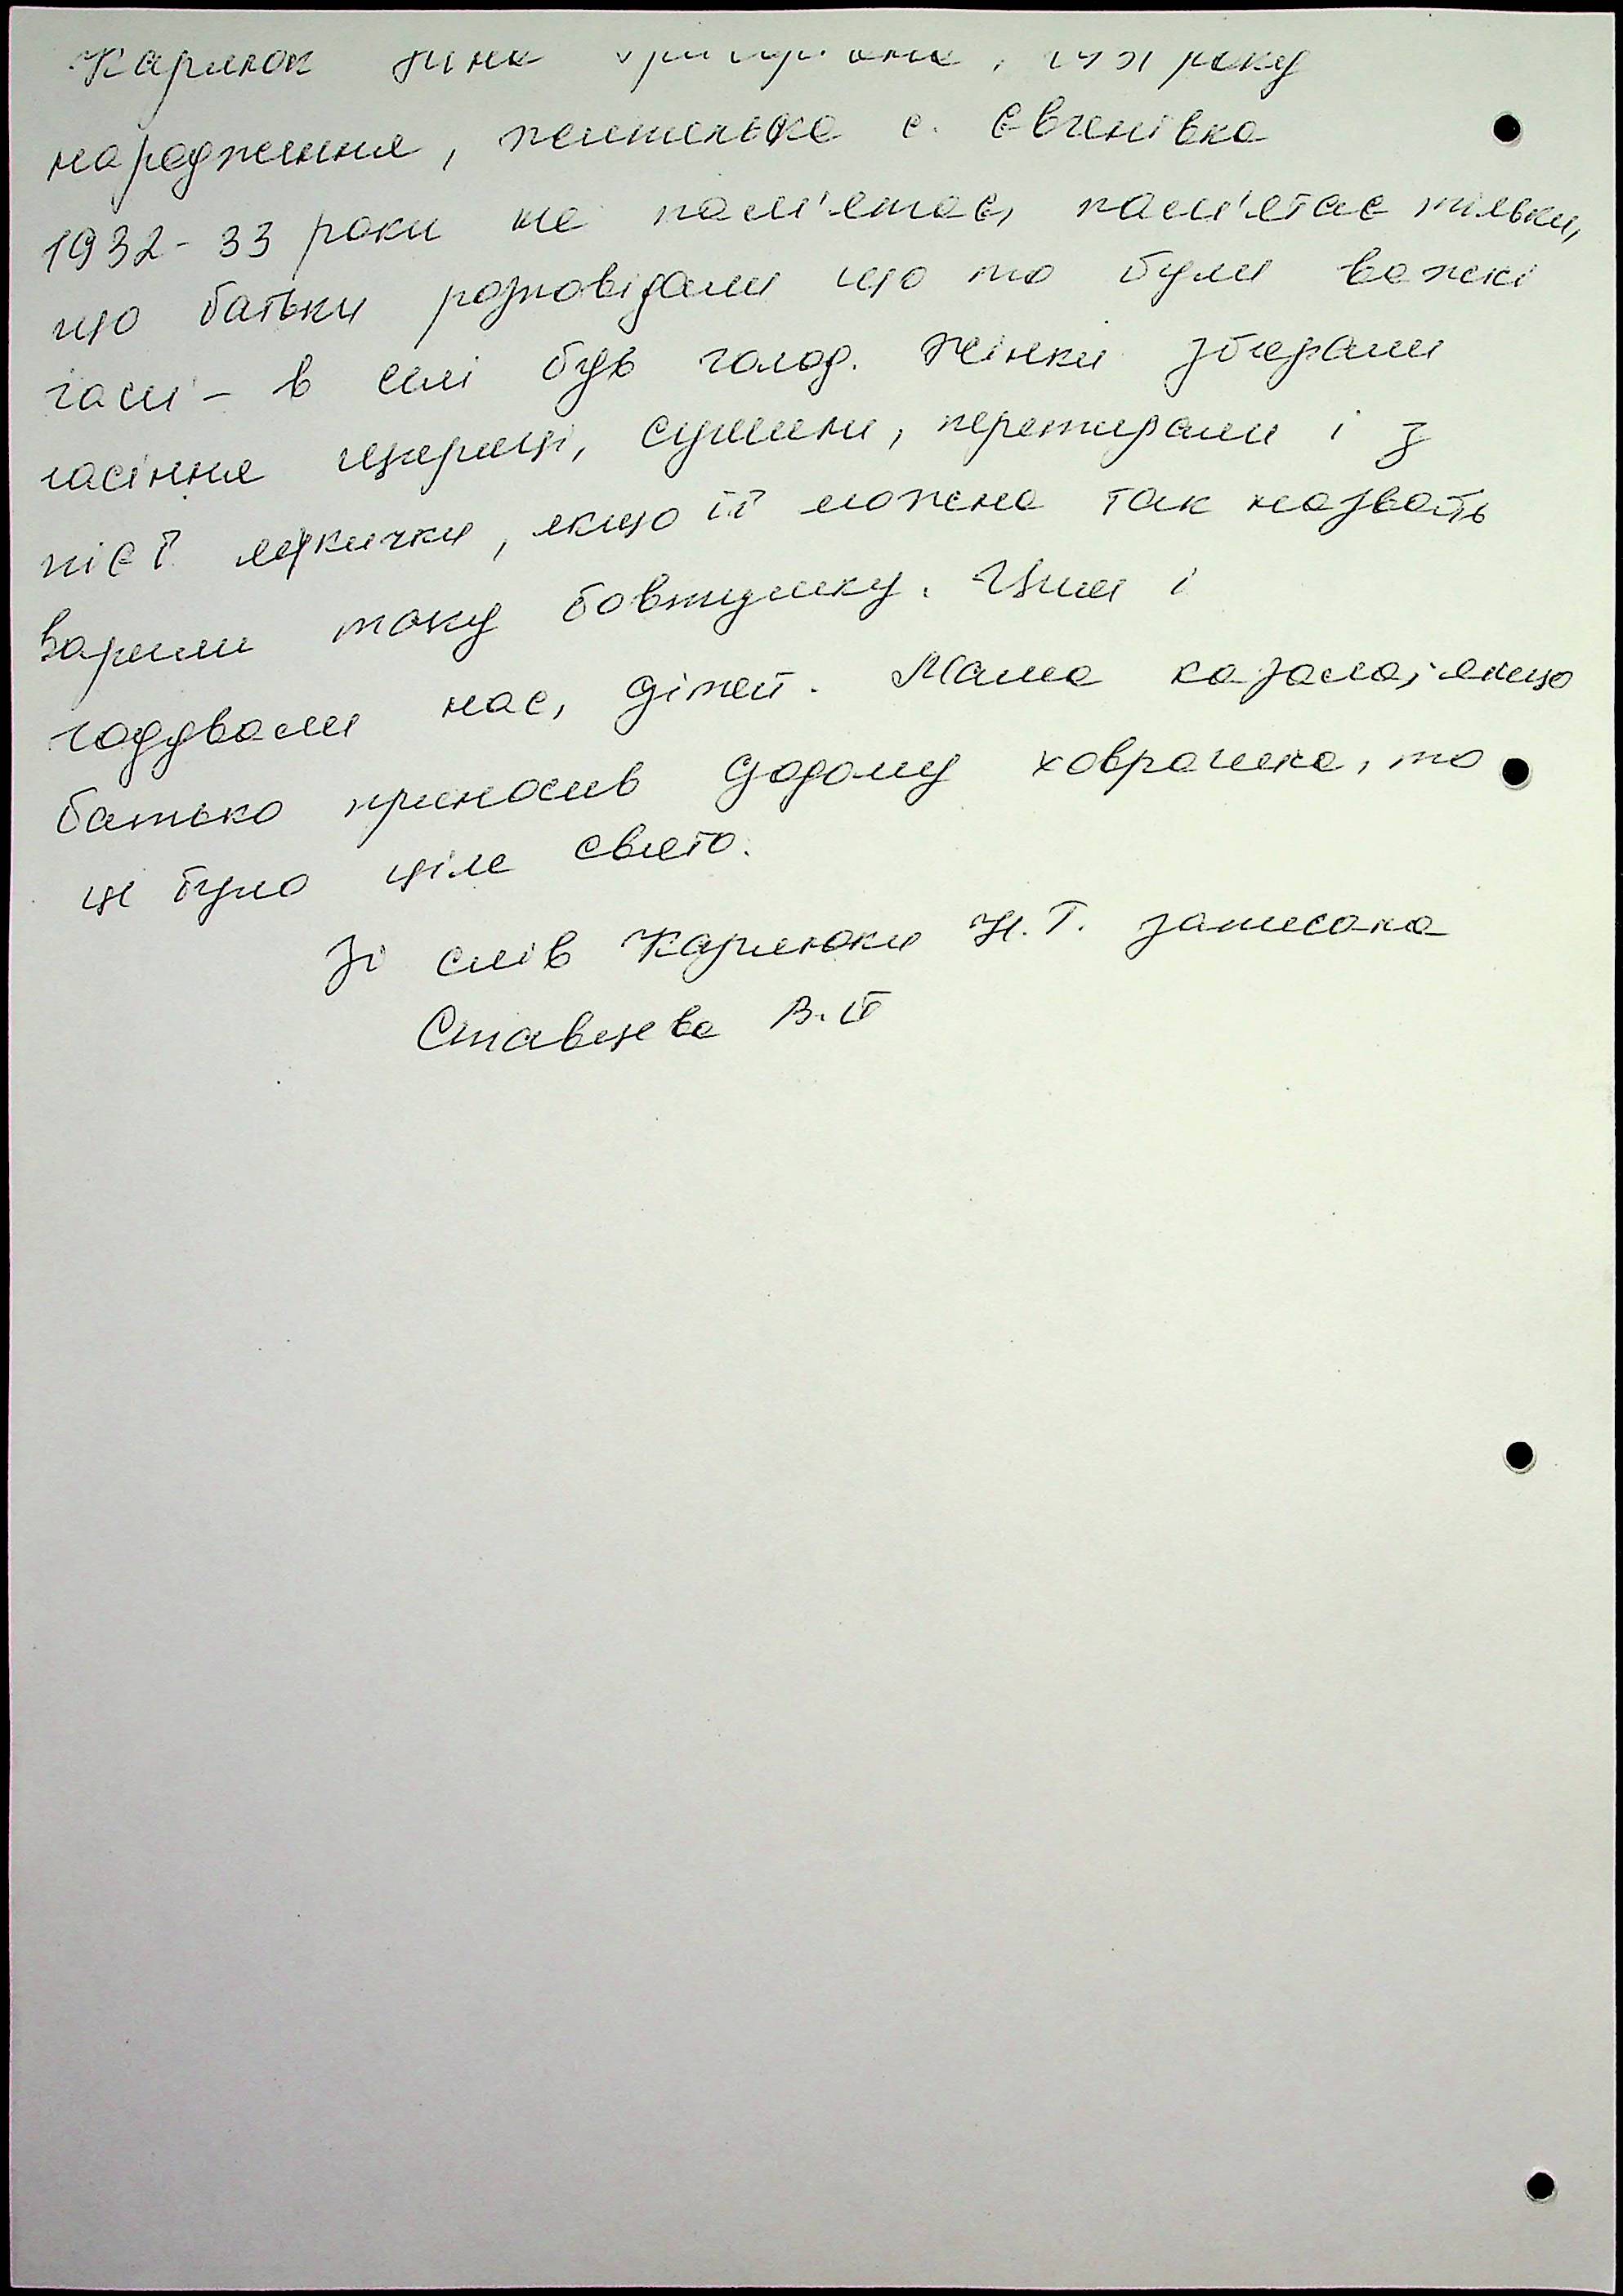 Карлюк року
народження, жителька с. Євгенівка
1932-33 роки не пам'ятає, пам'ятає тільки,
що батьки розповідали що то були важкі
часи - в селі був голод. Жінки збирали
насіння щериці, сушили, перетирали і з
цієї мучички, якщо її можна так назвать
варили таку бовтушку. Цим і
годували нас, дітей. Мама казала, якщо
батько приносив додому ховрашка, то
це було ціле свято.
Зі слів Карлюки Н.Г. записала
Ставцева В.П